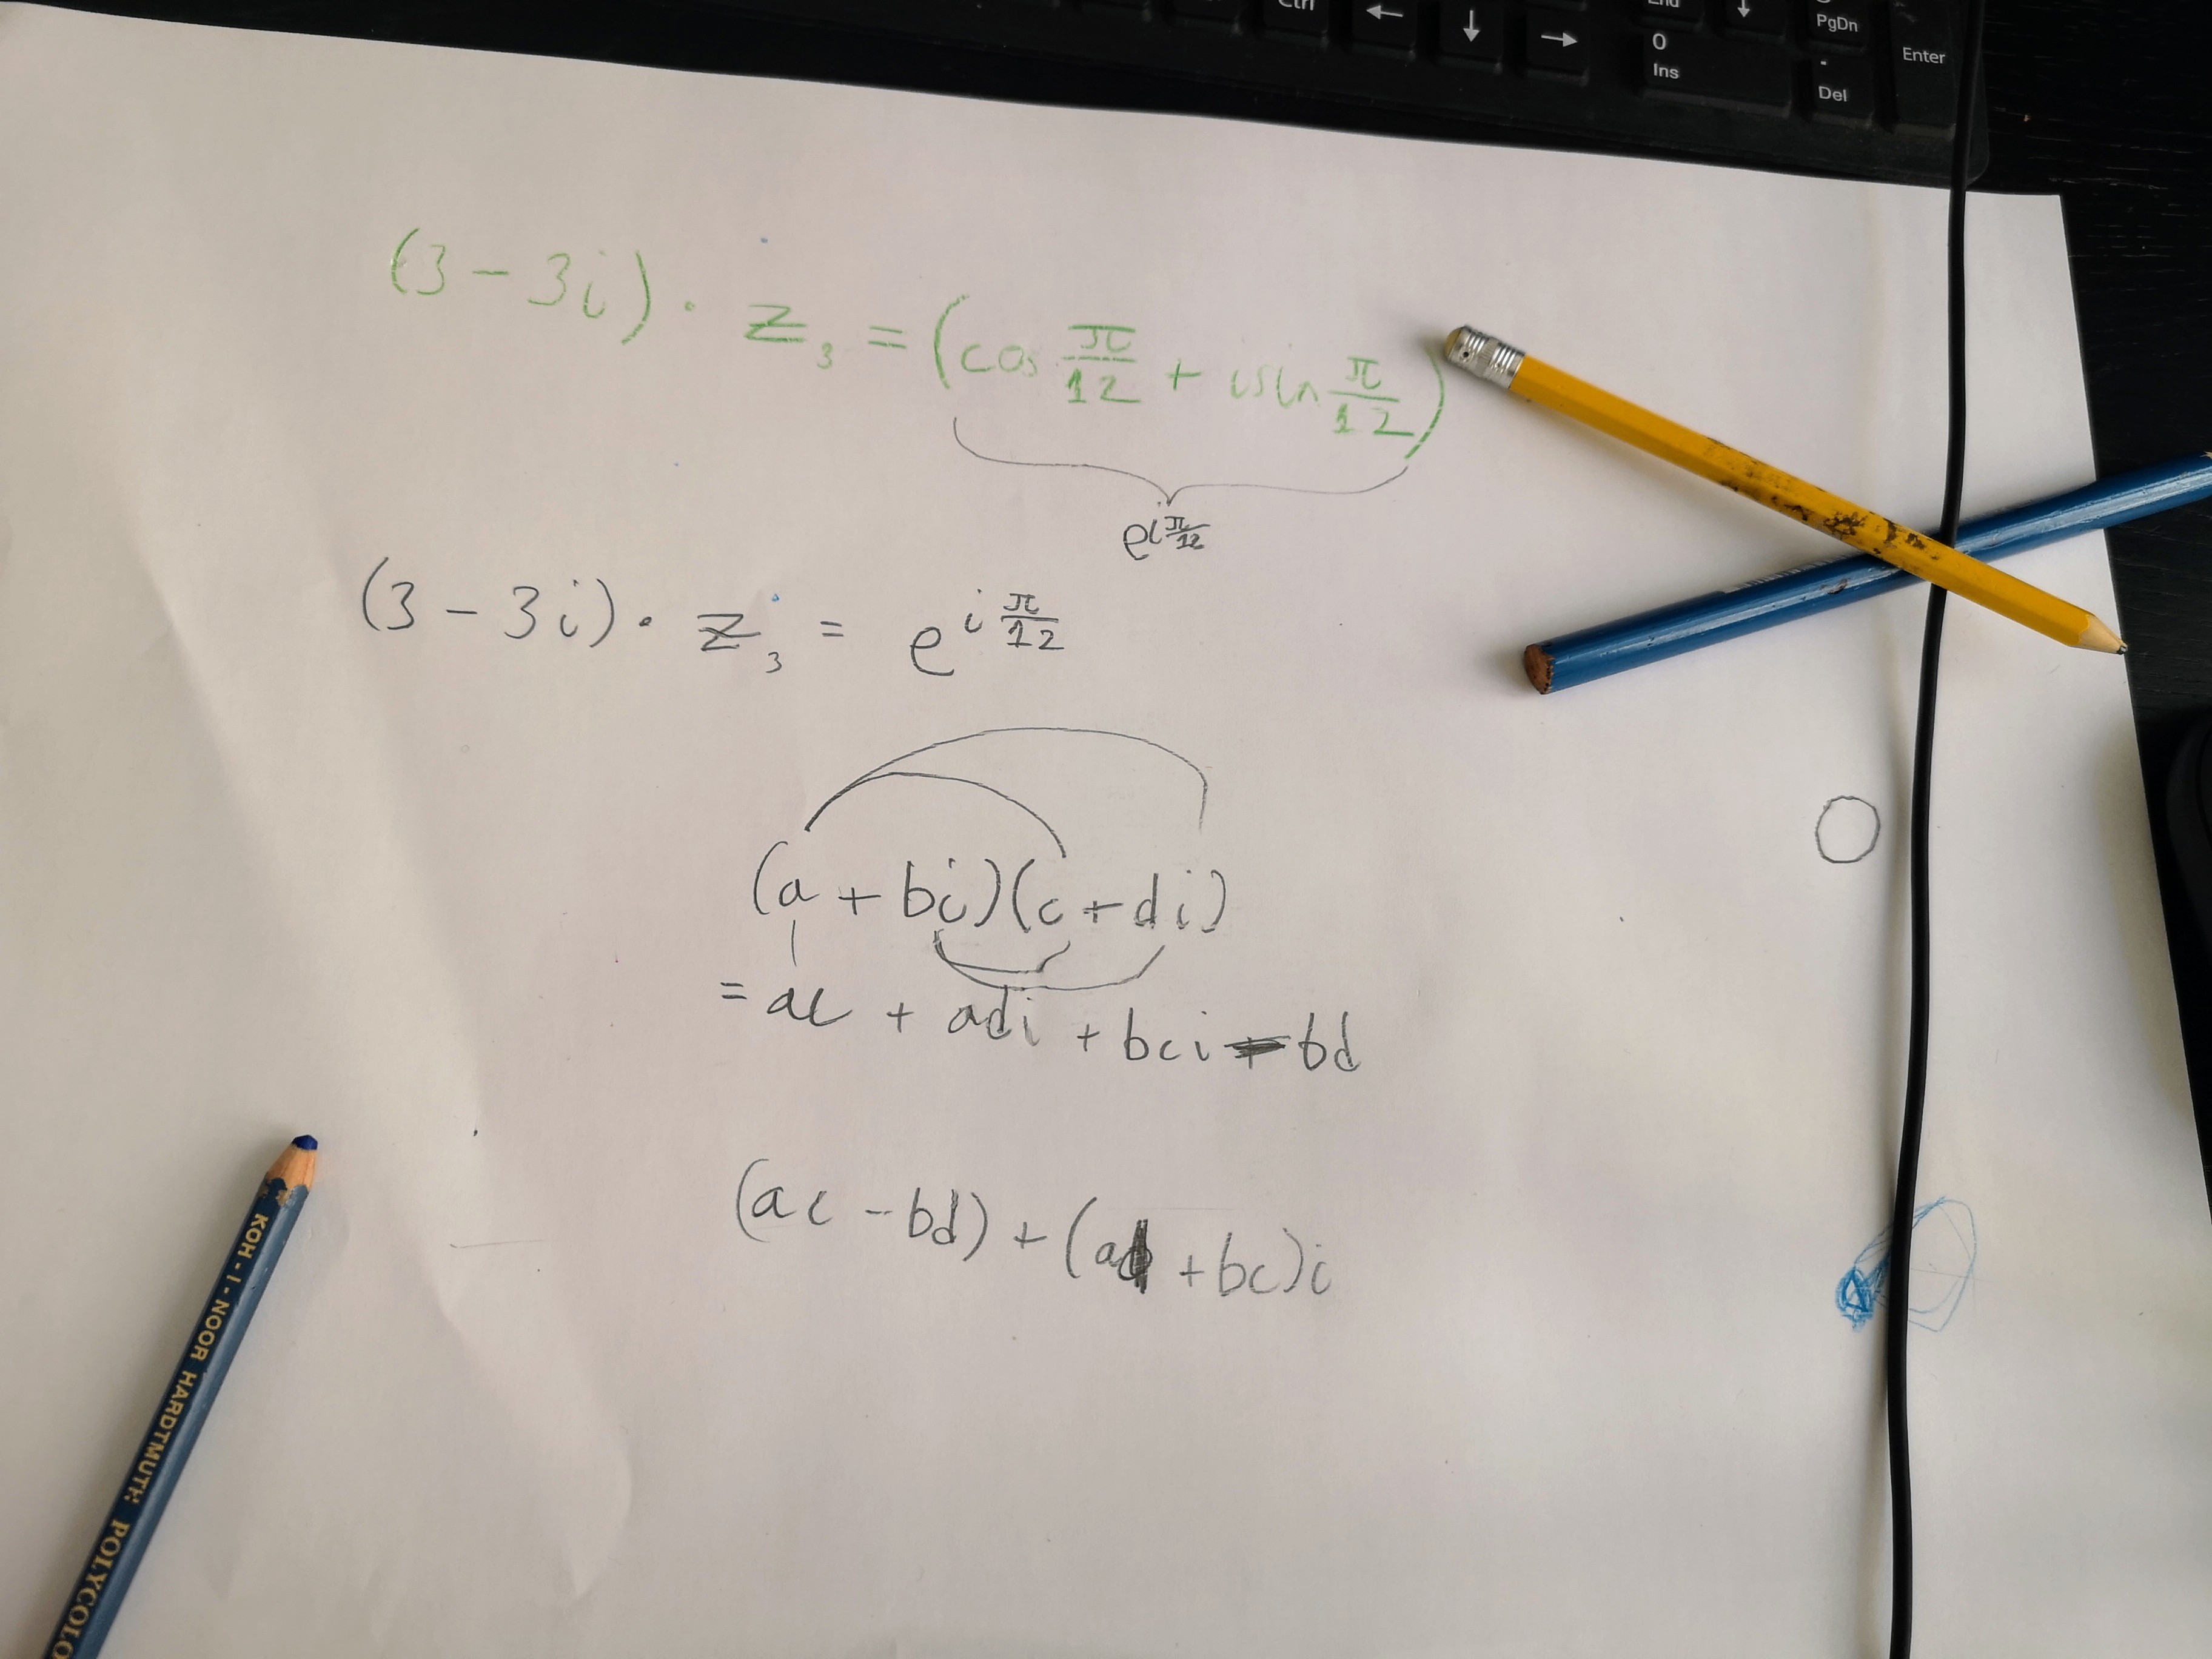 Ctrl ← ↓ → End ↓ PgDn
0 Ins . Del Enter
(3 - 3i) · z₃ = (cos π/12 + isin π/12)
e^(i π/12)
(3 - 3i) · z₃ = e^(i π/12)
(a + bi)(c + di)
= ac + adi + bci - bd
(ac - bd) + (ad + bc)i
KOH-I-NOOR HARDTMUTH POLYCOLO